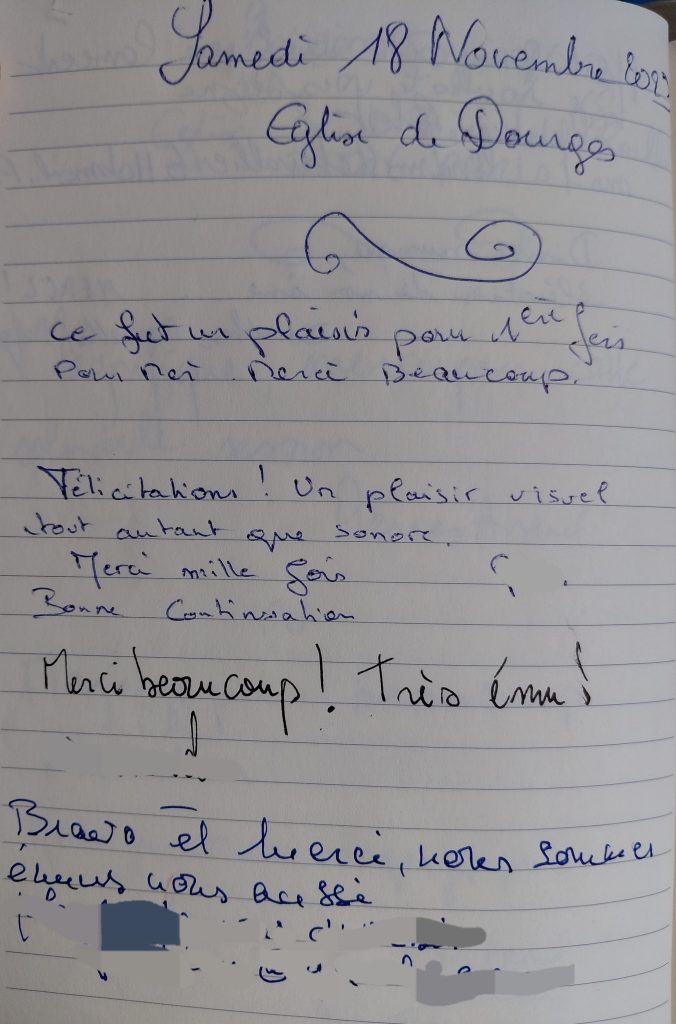 Samedi 18 Novembre
Eglise de Dourges
ce fut un plaisir pour 1ère fois
Pour moi. Merci Beaucoup.
Félicitations ! Un plaisir visuel
tout autant que sonore.
Merci mille fois
Bonne Continuation
Merci beaucoup ! Très ému !
Bravo et Merci, nous sommes
émus nous aussi